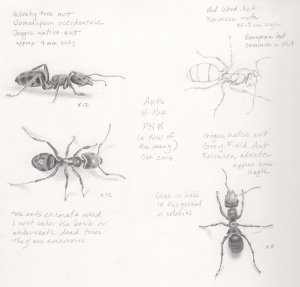 Velvety tree ant
Liometopum occidentale
Oregon native ant
approx 4 mm long
x12
x12
tree ants excavate wood
& nest under the bark or
underneath dead trees.
They are omnivores
Ants
of the
PNW
(a few of
the many)
Oct 2014
Red Wood Ant
Formica rufa
European but
common in
Oregon native ant
Grey Field Ant
Formica
approx
length
Lives in hole
in the ground
in colonies
x8